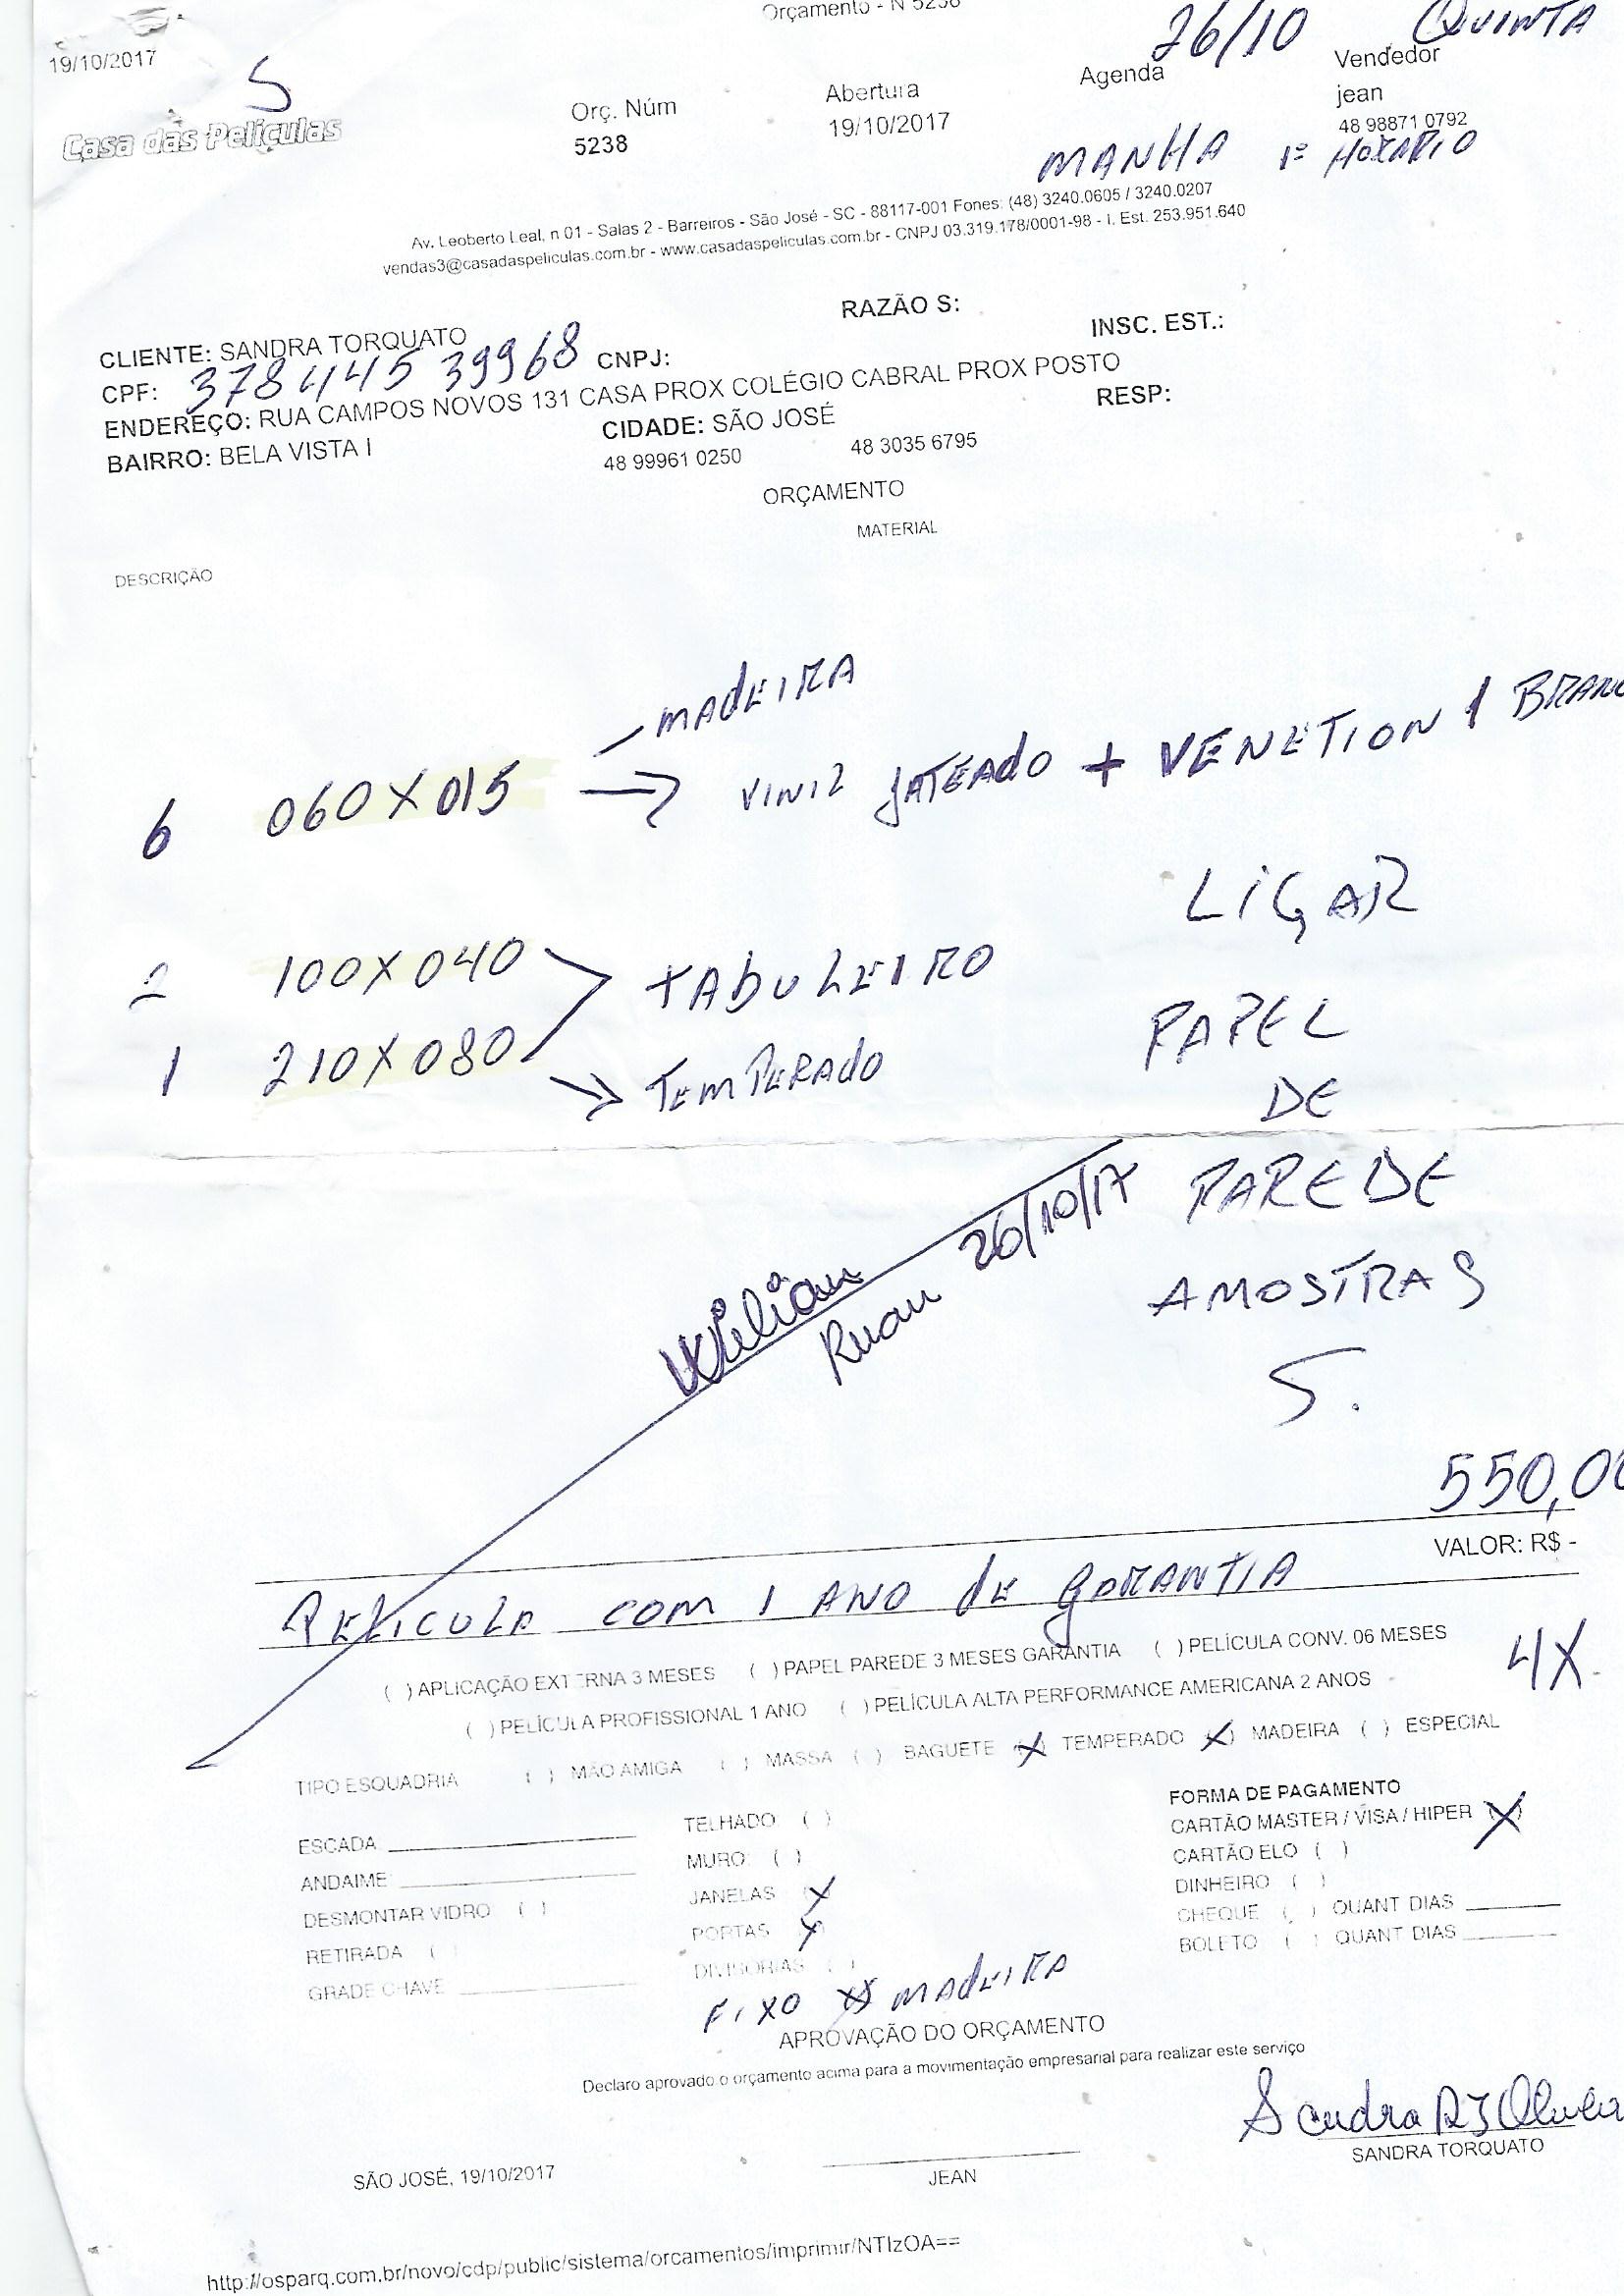 Orçamento - N 5238
19/10/2017
26/10 QUINTA
S
Casa das Películas
Orç. Núm
5238
Abertura
19/10/2017
Agenda
Vendedor
jean
48 98871 0792
MANHA 1º HORARIO
Av. Leoberto Leal, n 01 - Salas 2 - Barreiros - São José - SC - 88117-001 Fones: (48) 3240.0605 / 3240.0207
vendas3@casadaspeliculas.com.br - www.casadaspeliculas.com.br - CNPJ 03.319.178/0001-98 - I. Est. 253.951.640
CLIENTE: SANDRA TORQUATO RAZÃO S:
CPF: 378 445 39968 CNPJ: INSC. EST.:
ENDEREÇO: RUA CAMPOS NOVOS 131 CASA PROX COLÉGIO CABRAL PROX POSTO
BAIRRO: BELA VISTA I CIDADE: SÃO JOSÉ RESP:
48 99961 0250 48 3035 6795
ORÇAMENTO
MATERIAL
DESCRIÇÃO
MADEIRA
6 060X015 → VINIL JATEADO + VENETION 1 BRANC
LIGAR
2 100X040 TABULEIRO
PAPEL
1 210X080 → TEMPERADO
DE
PAREDE
26/10/17
Ruan
AMOSTRAS
S.
550,00
VALOR: R$ -
PELICULA COM 1 ANO DE GARANTIA
( ) APLICAÇÃO EXTERNA 3 MESES ( ) PAPEL PAREDE 3 MESES GARANTIA ( ) PELÍCULA CONV. 06 MESES
4X
( ) PELÍCULA PROFISSIONAL 1 ANO ( ) PELÍCULA ALTA PERFORMANCE AMERICANA 2 ANOS
TIPO ESQUADRIA ( ) MÃO AMIGA ( ) MASSA ( ) BAGUETE (X) TEMPERADO (X) MADEIRA ( ) ESPECIAL
ESCADA
ANDAIME
DESMONTAR VIDRO ( )
RETIRADA ( )
GRADE CHAVE
TELHADO ( )
MURO ( )
JANELAS (X)
PORTAS (X)
DIVISORIAS ( )
FIXO XX MADEIRA
FORMA DE PAGAMENTO
CARTÃO MASTER / VISA / HIPER (X)
CARTÃO ELO ( )
DINHEIRO ( )
CHEQUE ( ) QUANT DIAS
BOLETO ( ) QUANT DIAS
APROVAÇÃO DO ORÇAMENTO
Declaro aprovado o orçamento acima para a movimentação empresarial para realizar este serviço
SÃO JOSÉ, 19/10/2017
JEAN
SANDRA TORQUATO
http://osparq.com.br/novo/cdp/public/sistema/orcamentos/imprimir/NTIzOA==